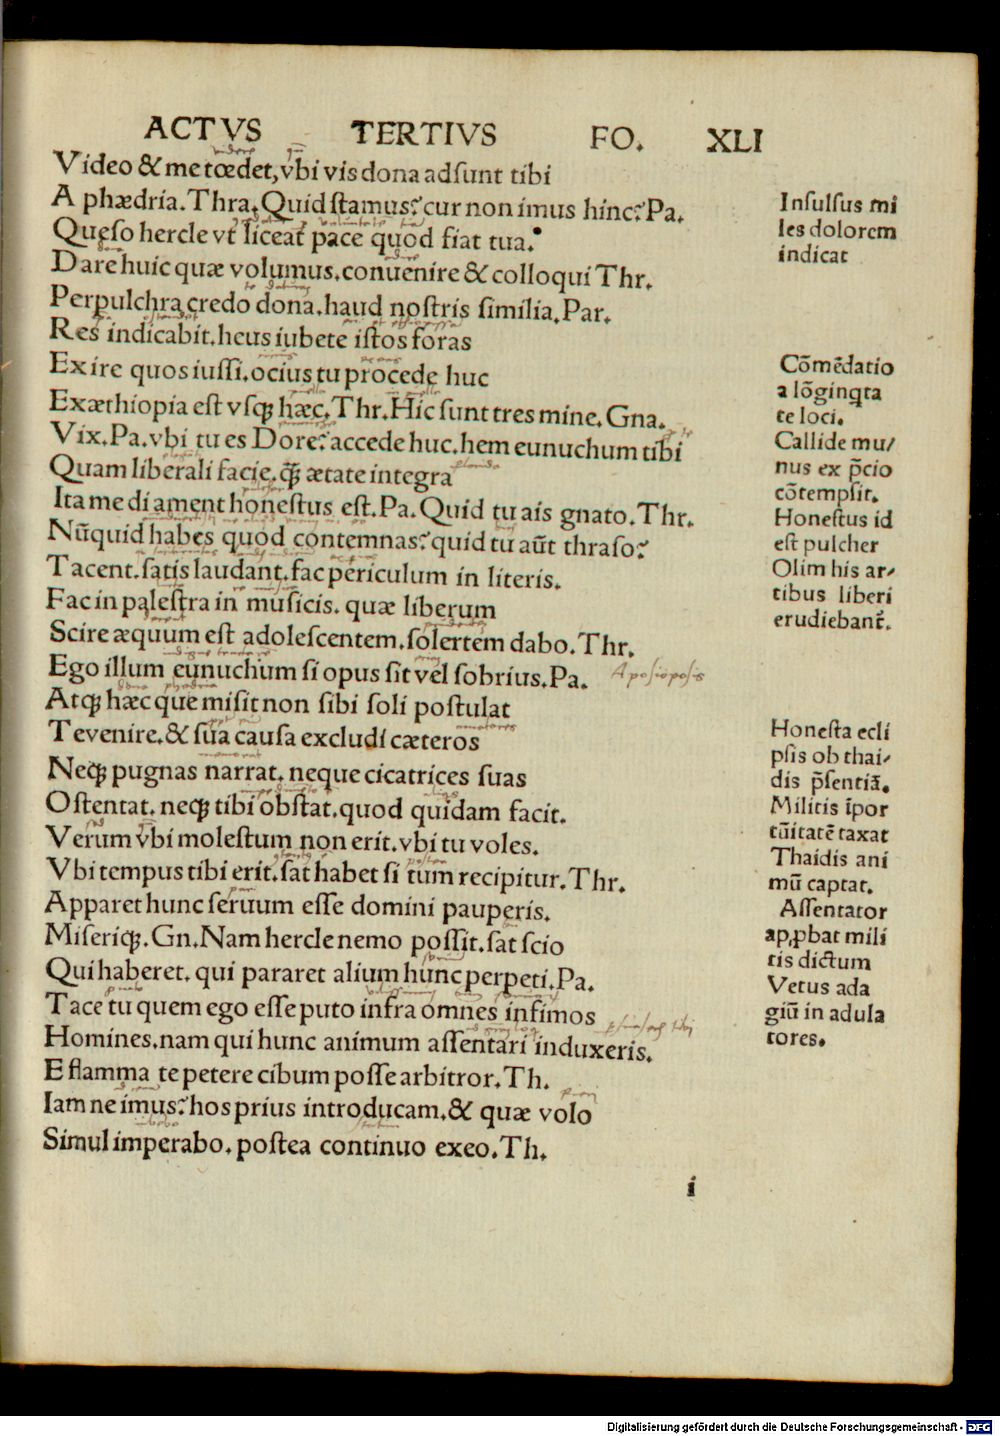 ACTVS TERTIVS FO. XLI
Video & me tœdet, vbi vis dona adsunt tibi
A phædria. Thra. Quid stamus? cur non imus hinc? Pa.
Queso hercle vt liceat pace quod fiat tua.
Dare huic quæ volumus. conuenire & colloqui Thr.
Perpulchra credo dona. haud nostris similia. Par.
Res indicabit. heus iubete istos foras
Exire quos iussi. ocius tu procede huc
Exæthiopia est vsqꝫ hæc. Thr. Hic sunt tres mine. Gna.
Vix. Pa. vbi tu es Dore? accede huc. hem eunuchum tibi
Quam liberali facie. q̃ȝ ætate integra
Ita me di ament honestus est. Pa. Quid tu ais gnato. Thr.
Nūquid habes quod contemnas? quid tu aūt thraso?
Tacent. satis laudant. fac periculum in literis.
Fac in palestra in musicis. quæ liberum
Scire æquum est adolescentem. solertem dabo. Thr.
Ego illum eunuchum si opus sit vel sobrius. Pa. Aposioposis
Atqꝫ hæc que misit non sibi soli postulat
Te venire. & sua causa excludi cæteros
Neqꝫ pugnas narrat. neque cicatrices suas
Ostentat. neqꝫ tibi obstat. quod quidam facit.
Verum vbi molestum non erit. vbi tu voles.
Vbi tempus tibi erit. sat habet si tum recipitur. Thr.
Apparet hunc seruum esse domini pauperis.
Miseriqꝫ. Gn. Nam hercle nemo possit. sat scio
Qui haberet. qui pararet alium hunc perpeti. Pa.
Tace tu quem ego esse puto infra omnes infimos
Homines. nam qui hunc animum assentari induxeris.
E flamma te petere cibum posse arbitror. Th.
Iam ne imus? hos prius introducam. & quæ volo
Simul imperabo. postea continuo exeo. Th.
i
Insulsus mi
les dolorem
indicat
Cōmēdatio
a lōginqta
te loci.
Callide mu/
nus ex p̄cio
cōtempsit.
Honestus id
est pulcher
Olim his ar/
tibus liberi
erudiebant̃.
Honesta ecli
psis ob thai/
dis p̄sentiā.
Militis īpor
tūitatē taxat
Thaidis ani
mū captat.
Assentator
apꝓbat mili
tis dictum
Vetus ada
giū in adula
tores.
Digitalisierung gefördert durch die Deutsche Forschungsgemeinschaft - DFG